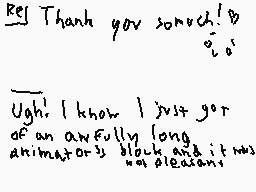 Re; Thank you somuch! ♡
Ugh! I know I just got
of an awfully long
animator's block and it was
not pleasant